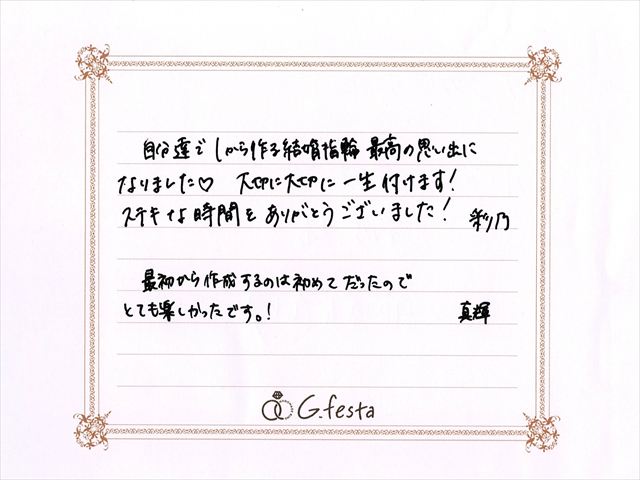 自分達で1から作る結婚指輪 最高の思い出に
なりました♡ 大切に大切に一生付けます!
ステキな時間をありがとうございました! 彩乃
最初から作成するのは初めてだったので
とても楽しかったです。! 真輝
G.festa